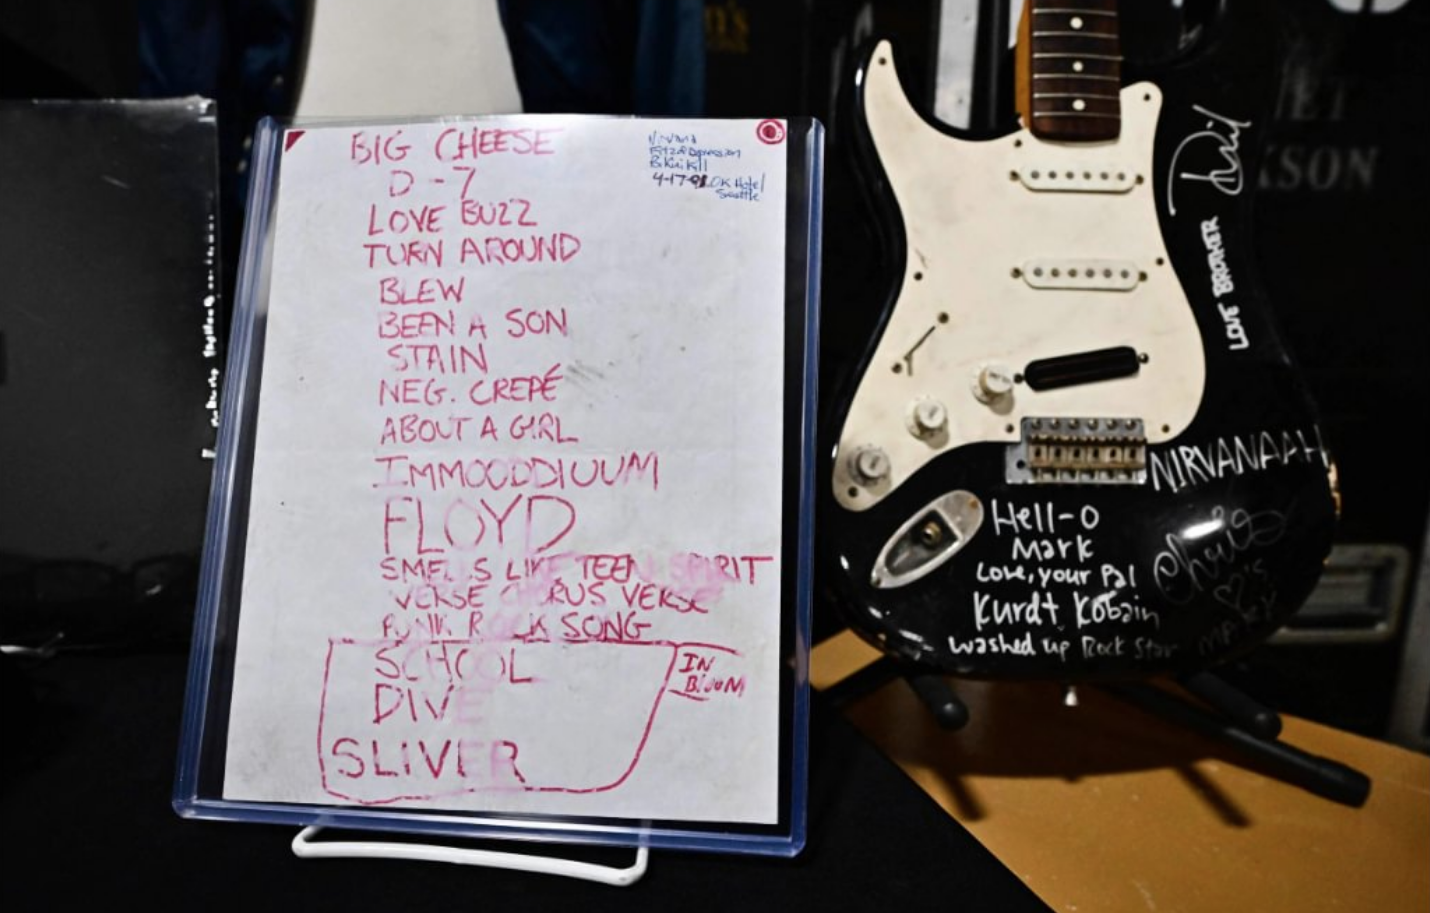 BIG CHEESE
D-7
LOVE BUZZ
TURN AROUND
BLEW
BEEN A SON
STAIN
NEG. CREPÉ
ABOUT A GIRL
IMMOODDIUUM
FLOYD
SMELLS LIKE TEEN SPIRIT
VERSE CHORUS VERSE
PUNK ROCK SONG
SCHOOL
DIVE
SLIVER
IN
BLOOM
Nirvana
Fitz of Depression
Bikini Kill
4-17-91 OK Hotel
Seattle
LOVE BROTHER
NIRVANAAH
Hell-o
Mark
Love, your Pal
Kurdt Kobain
washed up Rock Star
Chris
KSON